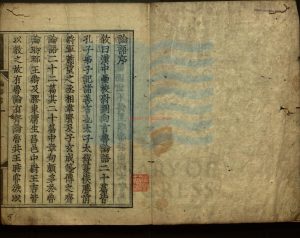 論語序
敘曰漢中壘校尉劉向言魯論語二十篇皆
孔子弟子記諸善言也太子太傅夏侯勝前
將軍蕭望之丞相韋賢及子玄成等傳之齊
論語二十二篇其二十篇中章句頗多於魯
論琅邪王卿及膠東庸生昌邑中尉王吉皆
以教之故有魯論有齊論魯共王時嘗欲以